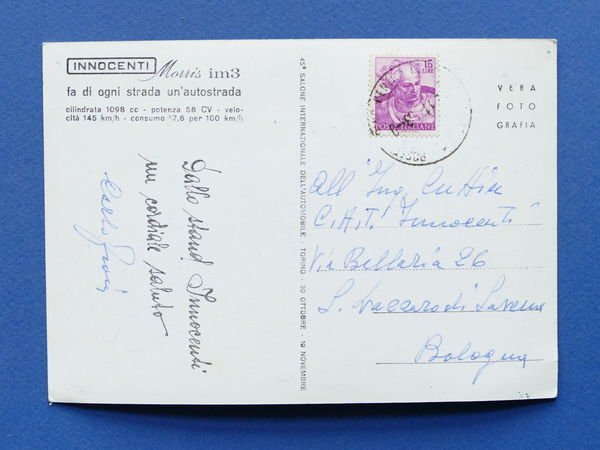 INNOCENTI Morris im3
fa di ogni strada un'autostrada
cilindrata 1098 cc - potenza 58 CV - velo-
cità 145 km/h - consumo 7,6 per 100 km/h
Dallo stand Innocenti
un cordiale saluto
Carlo
45° SALONE INTERNAZIONALE DELL'AUTOMOBILE - TORINO 30 OTTOBRE - 10 NOVEMBRE
15
LIRE
POSTE ITALIANE
VERA
FOTO
GRAFIA
All'Ing.
C.A.T. Innocenti
Via Bellaria 26
S. Lazzaro di Savena
Bologna